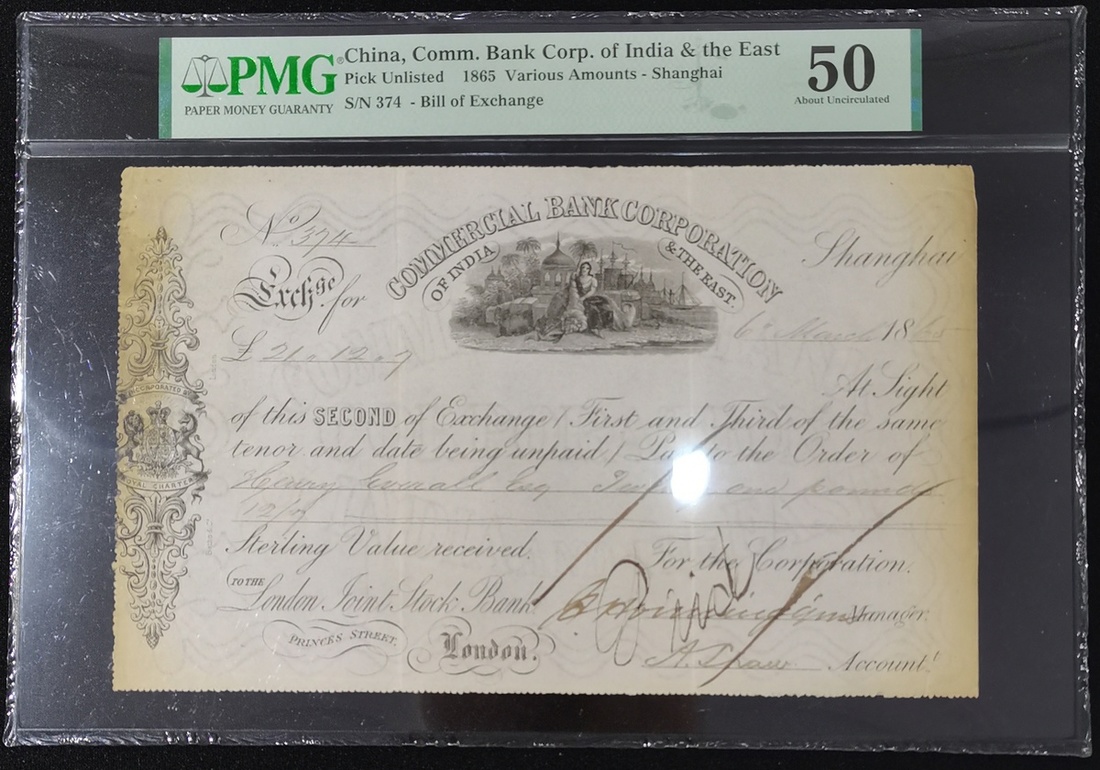 PMG
PAPER MONEY GUARANTY
China, Comm. Bank Corp. of India & the East
Pick Unlisted 1865 Various Amounts - Shanghai
S/N 374 - Bill of Exchange
50
About Uncirculated
COMMERCIAL BANK CORPORATION
OF INDIA & THE EAST.
No 374
Shanghai
Exchge for
£ 21.12.7
6 March 1865
At Sight
of this SECOND of Exchange / First and Third of the same
tenor and date being unpaid / Pay to the Order of
Henry Everall Esq Twenty one pounds
12/7
Sterling Value received.
For the Corporation.
TO THE
London Joint Stock Bank
Manager.
PRINCES STREET.
London.
Accountt
INCORPORATED BY
ROYAL CHARTER